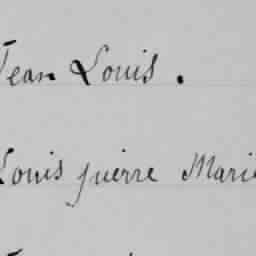 Jean Louis.
Louis pierre Marie